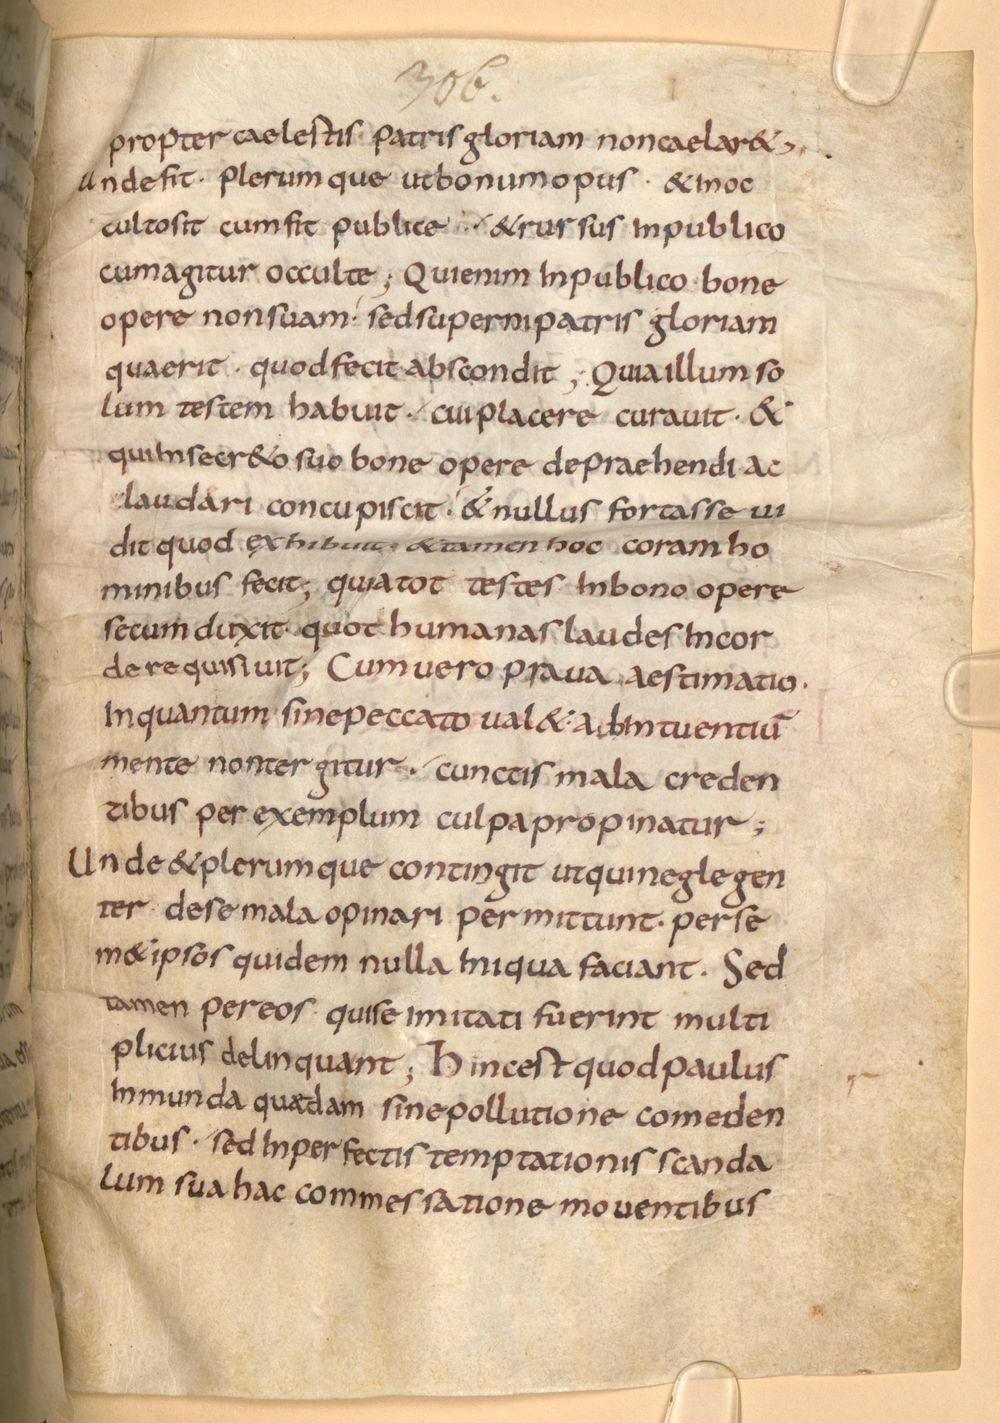 306.
propter caelestis patris gloriam non caelar&;
Unde fit· plerumque ut bonum opus· & inoc
cultosit cum fit publice·& rursus in publico
cum agitur occulte; Qui enim in publico bone
opere non suam· sed superni patris gloriam
quaerit· quod fecit abscondit; Quia illum so
lum testem habuit· cui placere curauit· &
qui in secr&o suo bone opere depraehendi ac
laudari concupiscit· & nullus fortasse ui
dit quod exhibuit· & tamen hoc coram ho
minibus fecit; quia tot testes in bono opere
secum duxit· quot humanas laudes in cor
de requisiuit; Cum uero praua aestimatio·
In quantum sine peccato ual&· ab intuentiū
mente non tergitur· cunctis mala creden
tibus per exemplum culpa propinatur;
Unde & plerumque contingit ut qui neglegen
ter de se mala opinari permittunt· per se
m&ipsos quidem nulla iniqua faciant· Sed
tamen per eos qui se imitati fuerint multi
plicius delinquant; Hinc est quod paulus
Inmunda quaedam sine pollutione comeden
tibus· sed inperfectis temptationis scanda
lum sua hac commessatione mouentibus